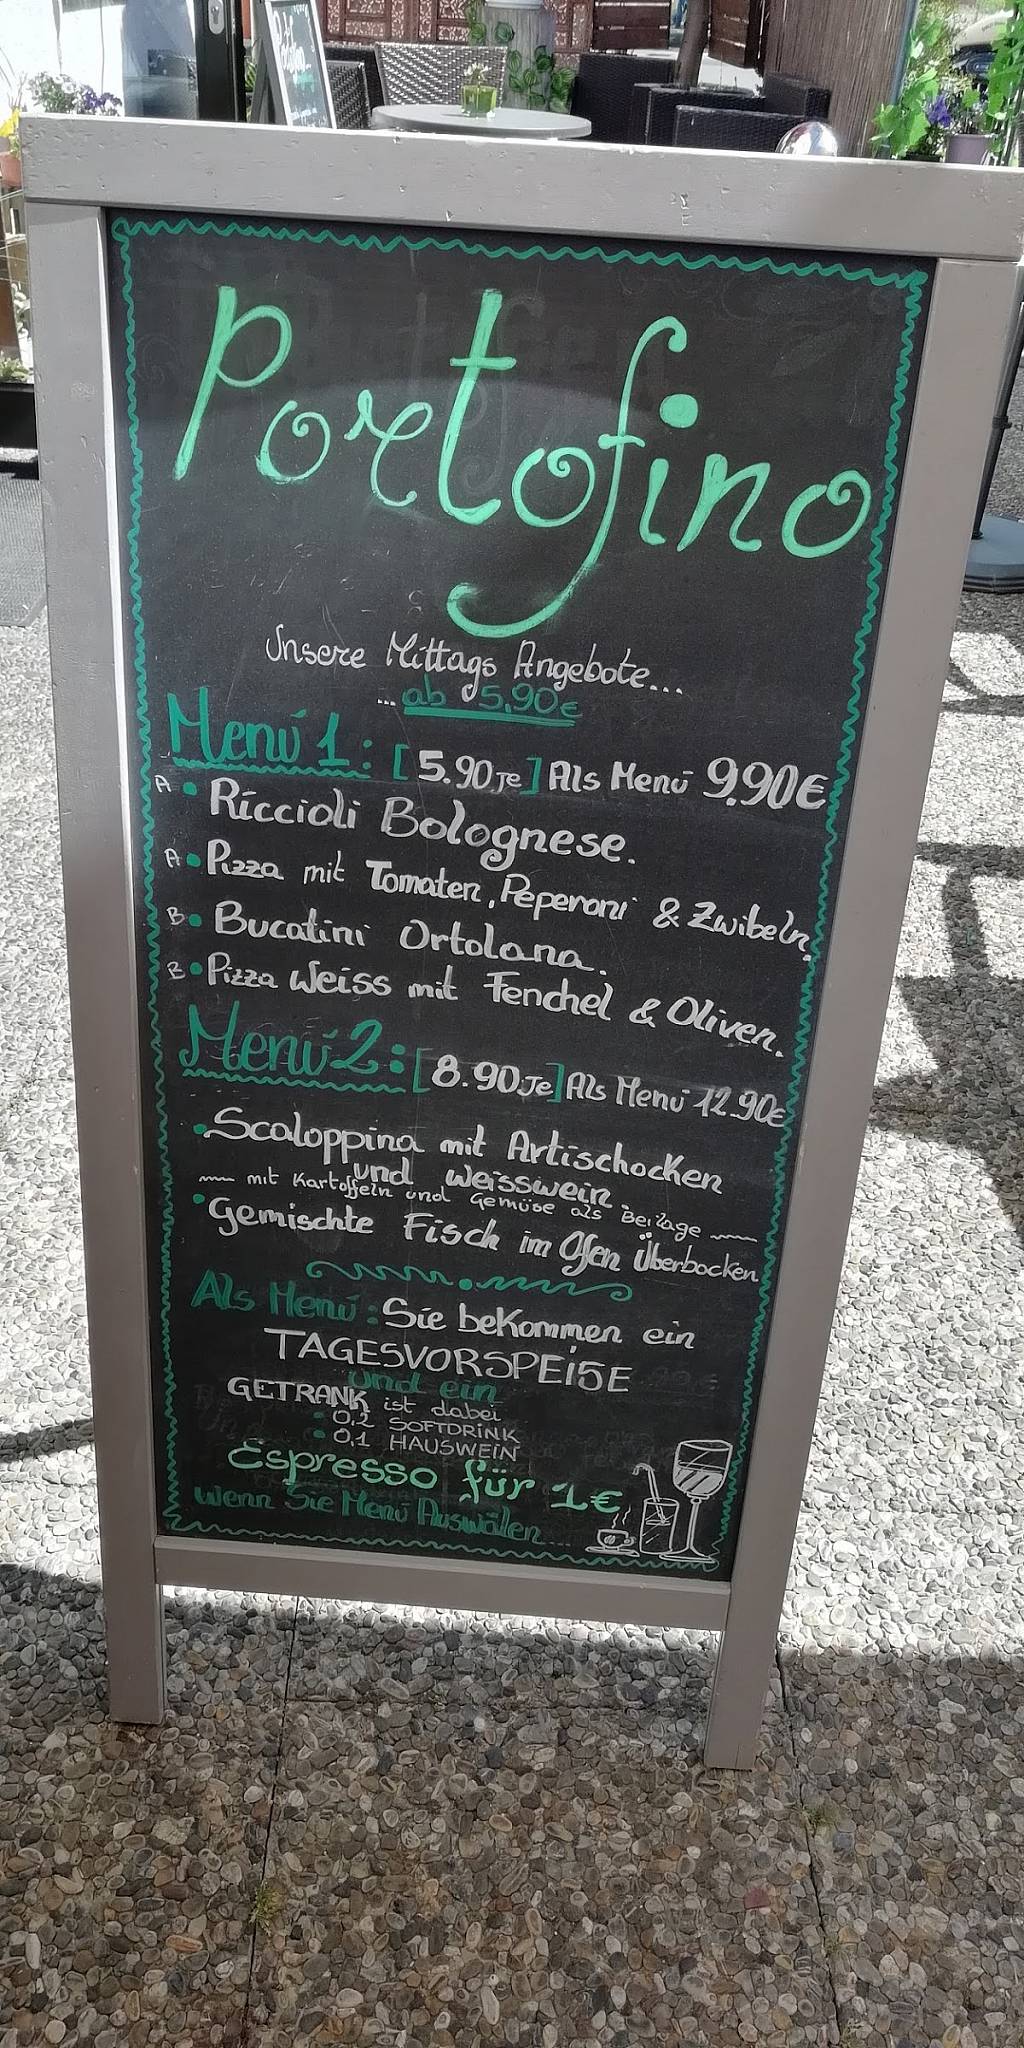 Portofino
Unsere Mittags Angebote...
... ab 5,90€
Menú 1: [5.90 Je] Als Menú 9.90€
A • Riccioli Bolognese.
A • Pizza mit Tomaten, Peperoni & Zwibeln.
B • Bucatini Ortolana.
B • Pizza Weiss mit Fenchel & Oliven.
Menú 2: [8.90 Je] Als Menú 12.90€
• Scaloppina mit Artischocken
und Weisswein.
mit Kartoffeln und Gemüse als Beilage
• Gemischte Fisch im Ofen Überbocken
Als Menú: Sie bekommen ein
TAGESVORSPEISE
und ein
GETRANK ist dabei
• 0,2 SOFTDRINK
• 0,1 HAUSWEIN
Espresso für 1€
wenn Sie Menú Auswälen...